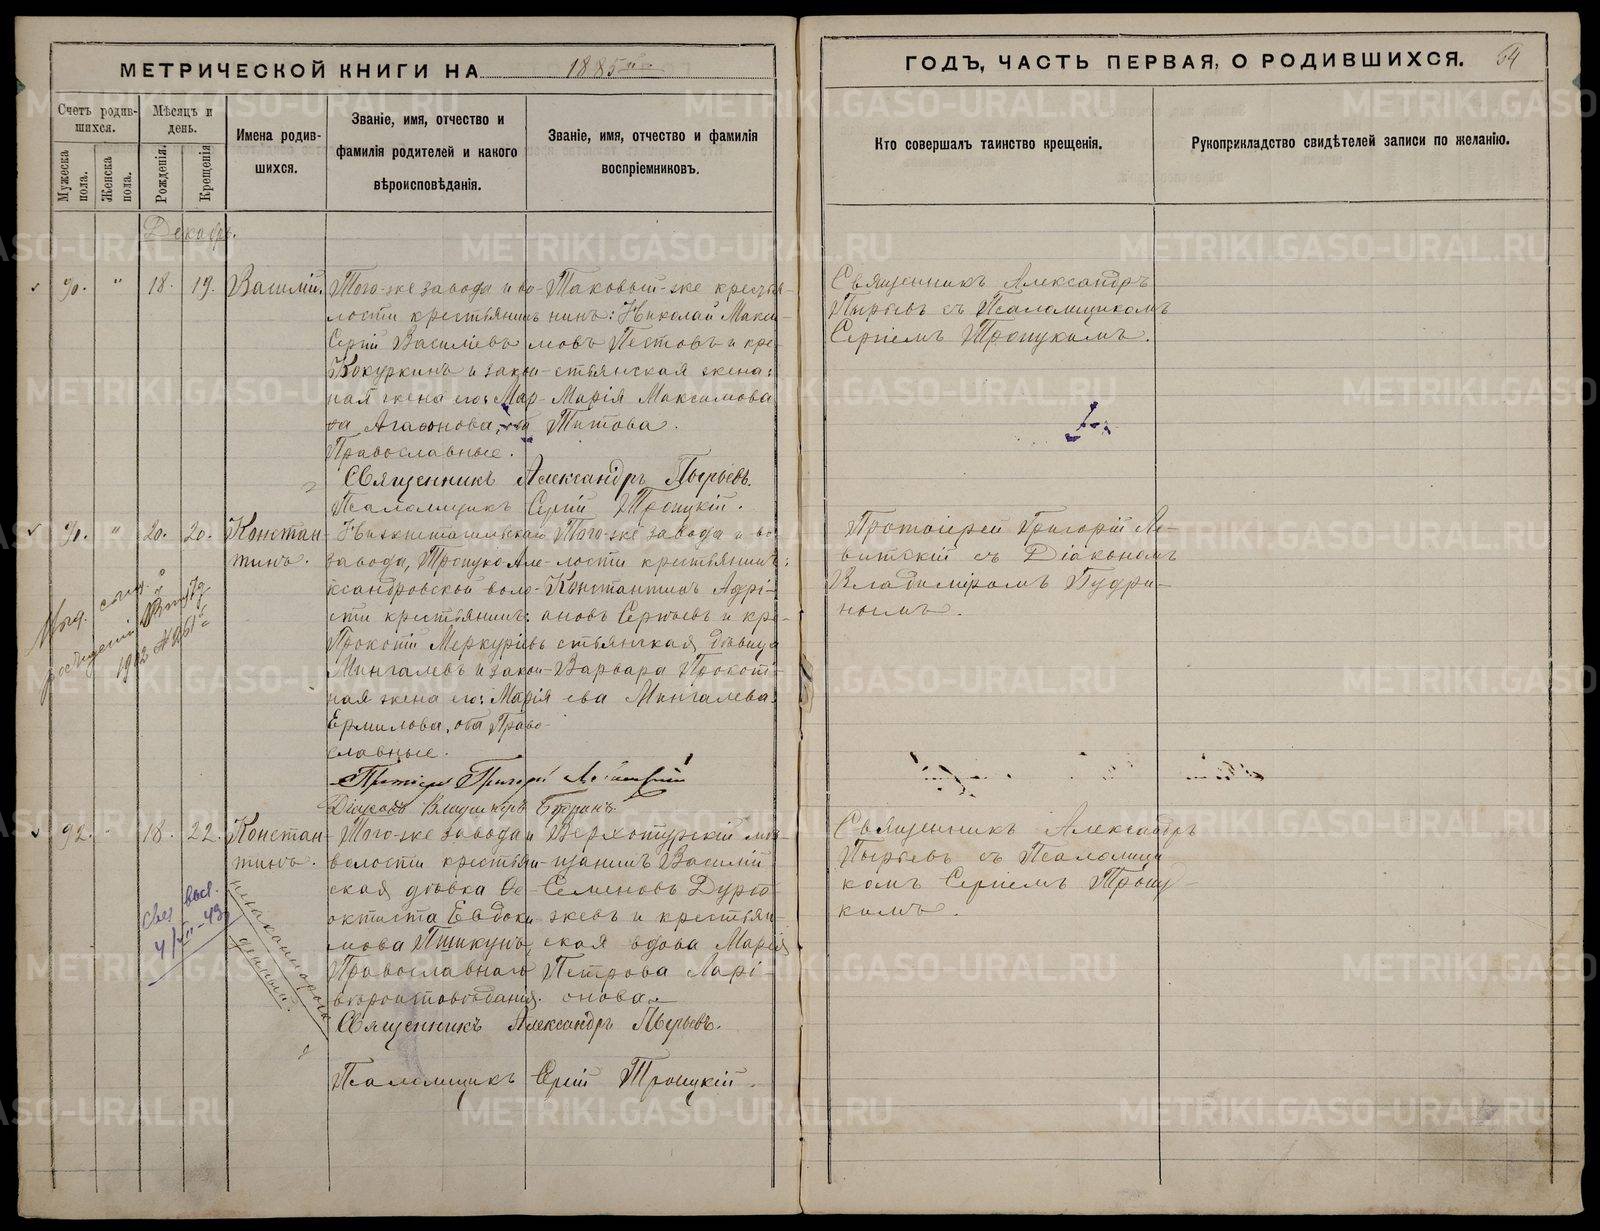 МЕТРИЧЕСКОЙ КНИГИ НА 1885
ГОДЪ, ЧАСТЬ ПЕРВАЯ, О РОДИВШИХСЯ. 64
Счетъ родив-
шихся.
Мужеска пола.
Женска пола.
Мѣсяцъ и
день.
Рожденія.
Крещенія
Имена родив-
шихся.
Званіе, имя, отчество и
фамилія родителей и какого
вѣроисповѣданія.
Званіе, имя, отчество и фамилія
воспріемниковъ.
Кто совершалъ таинство крещенія.
Рукоприкладство свидѣтелей записи по желанію.
Декабрь.
90. " 18. 19. Василій.
Того-же завода и во-
лости крестьянинъ
Сергій Василіевъ
Кокуркинъ и закон-
ная жена его: Мар-
ѳа Агаѳонова, оба
Православные.
Таковый-же крестья-
нинъ: Николай Макси-
мовъ Пестовъ и кре-
стьянская жена:
Марія Максимова
Титова.
Священникъ Александръ
Пырьевъ съ Псаломщикомъ
Сергіемъ Троицкимъ.
Священникъ Александръ Пырьевъ.
Псаломщикъ Сергій Троицкій.
91. " 20. 20. Констан-
тинъ.
Нижнетагильскаго
завода, Троицко-Але-
ксандровской воло-
сти крестьянинъ:
Прокопій Меркуріевъ
Мингалевъ и закон-
ная жена его: Марія
Ермилова, оба Право-
славные.
Того-же завода и во-
лости крестьянинъ:
Константинъ Адрі-
ановъ Сергѣевъ и кре-
стьянская дѣвица
Варвара Прокопі-
ева Мингалева.
Протоіерей Григорій Ле-
витскій съ Діакономъ
Владиміромъ Пудри-
нымъ.
1902
Протоіерей Григорій Левитскій
Діаконъ Владиміръ
92. " 18. 22. Констан-
тинъ.
Того-же завода и
волости крестьян-
ская дѣвка Ѳе-
октиста Евдоки-
мова
Православнаго
вѣроисповѣданія.
Верхотурскій мѣ-
щанинъ Василій
Семеновъ
и крестьян-
ская вдова Марія
Петрова Ларі-
онова.
Священникъ Александръ
Пырьевъ съ Псаломщи
комъ Сергіемъ Троиц-
кимъ.
незаконнорож
денный.
Священникъ Александръ Пырьевъ.
Псаломщикъ Сергій Троицкій.
METRIKI.GASO-URAL.RU